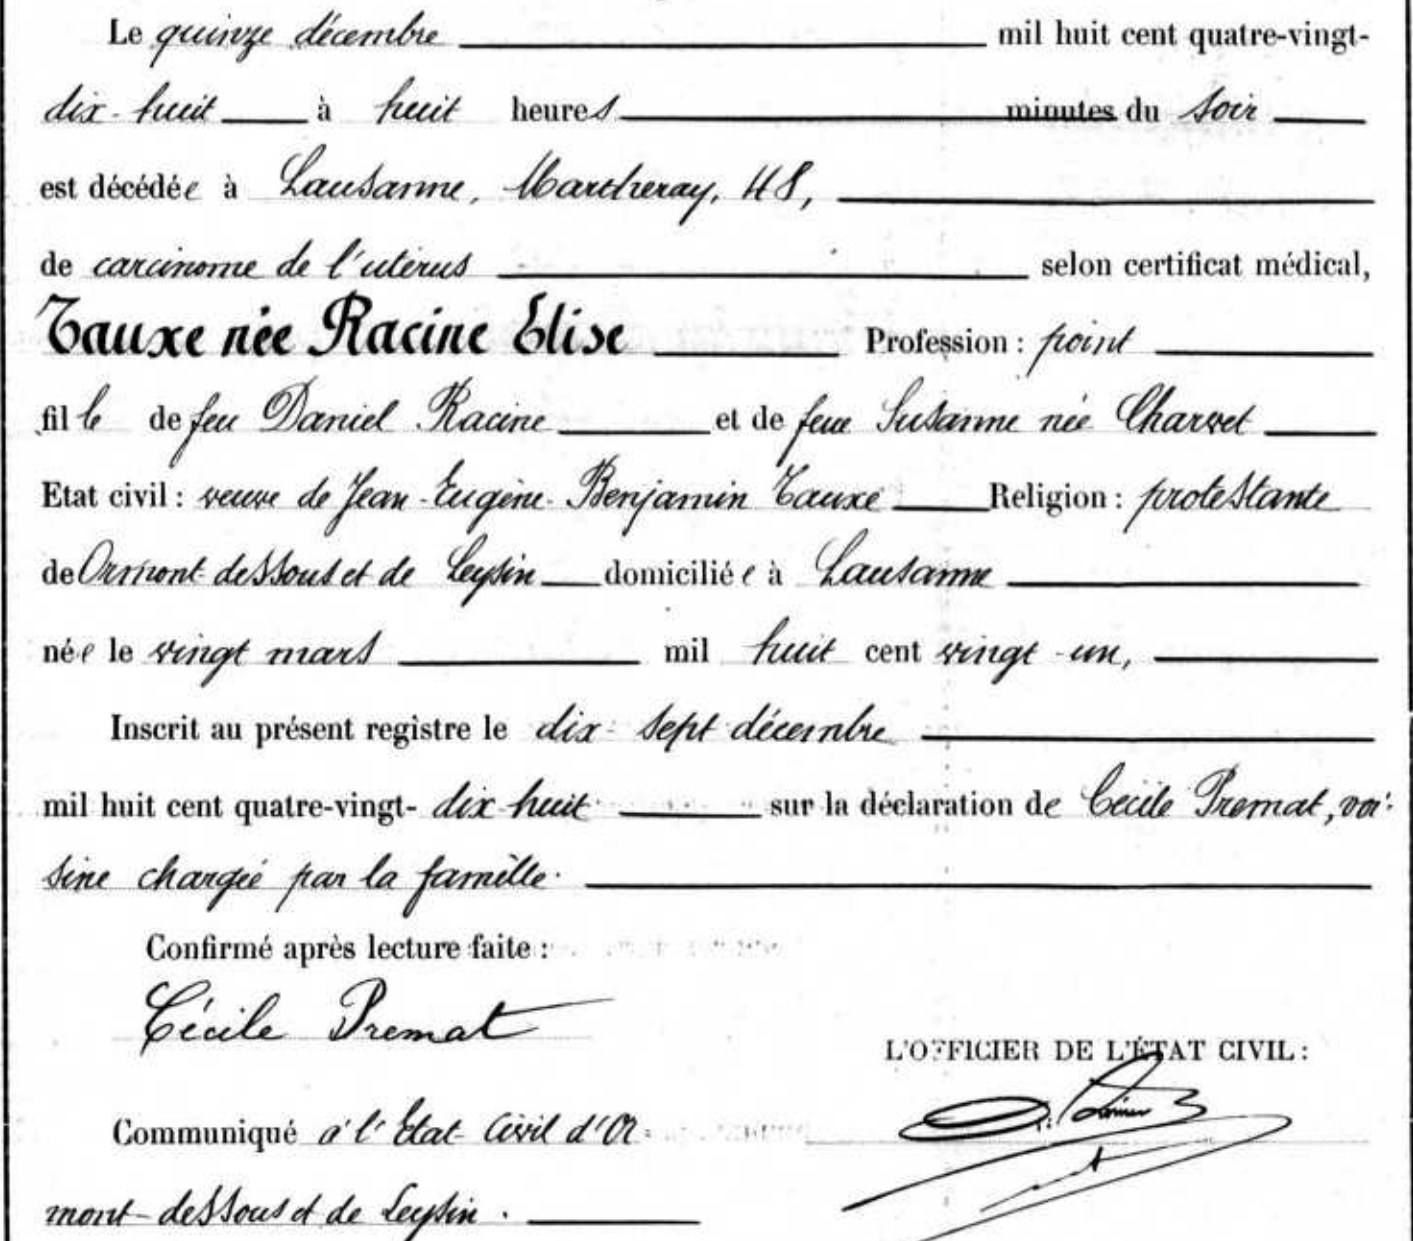 Le quinze décembre mil huit cent quatre-vingt-
dix-huit à huit heures minutes du soir
est décédée à Lausanne, Martheray, 48,
de carcinome de l'utérus selon certificat médical,
Tauxe née Racine Elise Profession : point
fille de feu Daniel Racine et de feue Susanne née Charvet
Etat civil : veuve de Jean-Eugène-Benjamin Tauxe Religion : protestante
de Ormont-dessous et de Leysin domiciliée à Lausanne
née le vingt mars mil huit cent vingt-un,
Inscrit au présent registre le dix-sept décembre
mil huit cent quatre-vingt-dix-huit sur la déclaration de Cécile Premat, voi-
sine chargée par la famille.
Confirmé après lecture faite :
Cécile Premat
L'OFFICIER DE L'ÉTAT CIVIL :
Communiqué à l'Etat-Civil d'Or-
mont-dessous et de Leysin.